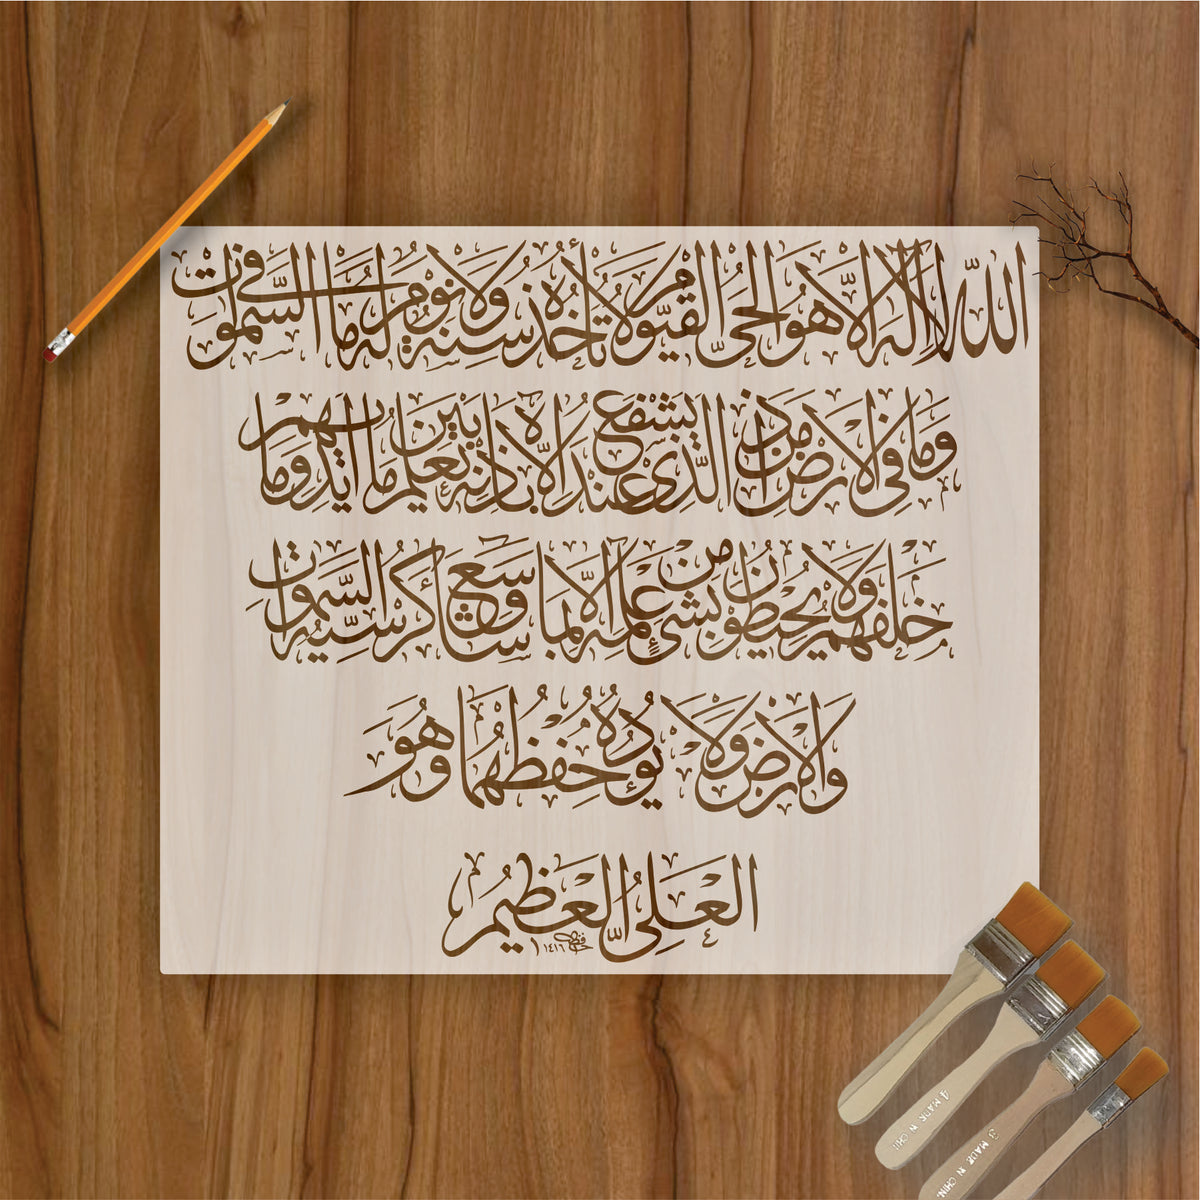 اللّه لا إله إلا هو الحيّ القيّوم لا تأخذه سنة ولا نوم له ما في السموات
وما في الأرض من ذا الذي يشفع عنده إلا بإذنه يعلم ما بين أيديهم وما
خلفهم ولا يحيطون بشيء من علمه إلا بما شاء وسع كرسيه السموات
والأرض ولا يؤده حفظهما وهو
العلي العظيم
١٤١٦
4 MADE IN CHI
3 MADE IN CHIN